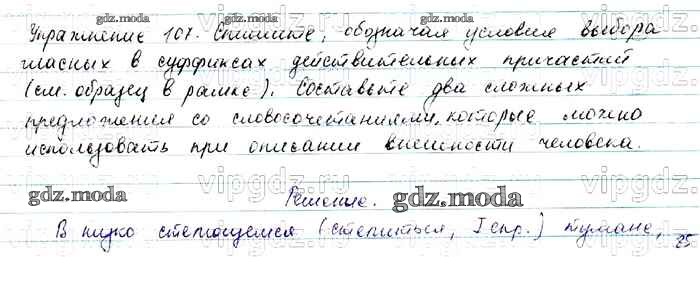 Упражнение 107. Спишите, обозначая условия выбора
гласных в суффиксах действительных причастий
(см. образец в рамке). Составьте два сложных
предложения со словосочетаниями, которые можно
использовать при описании внешности человека.
gdz.moda
Решение.
gdz.moda
В низко стелющемся (стелиться, I спр.) тумане,
25
vipgdz.ru